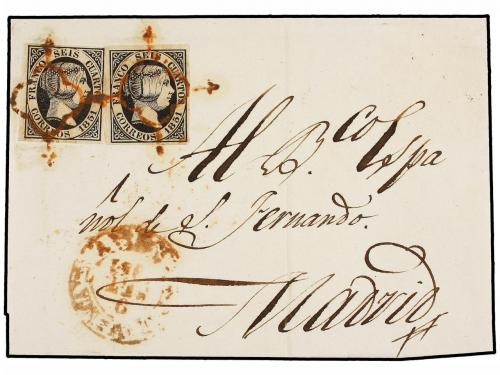 FRANCO SEIS CUARTOS
CORREOS 1851
FRANCO SEIS CUARTOS
CORREOS 1851
Al B.co Espa
ñol de S. Fernando.
Madrid